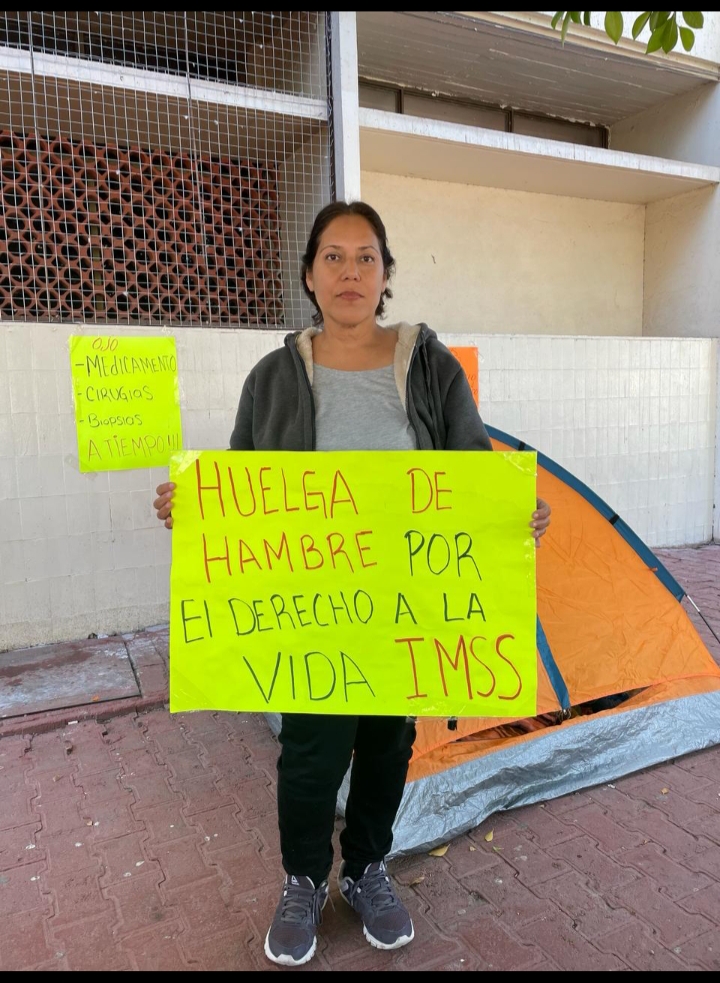 OJO
-MEdiCAMENTO
-CIRUGIAS
-BIOPSIAS
A TIEMPO!!!
HUELGA DE
HAMBRE POR
El DERECHO A LA
VIDA IMSS